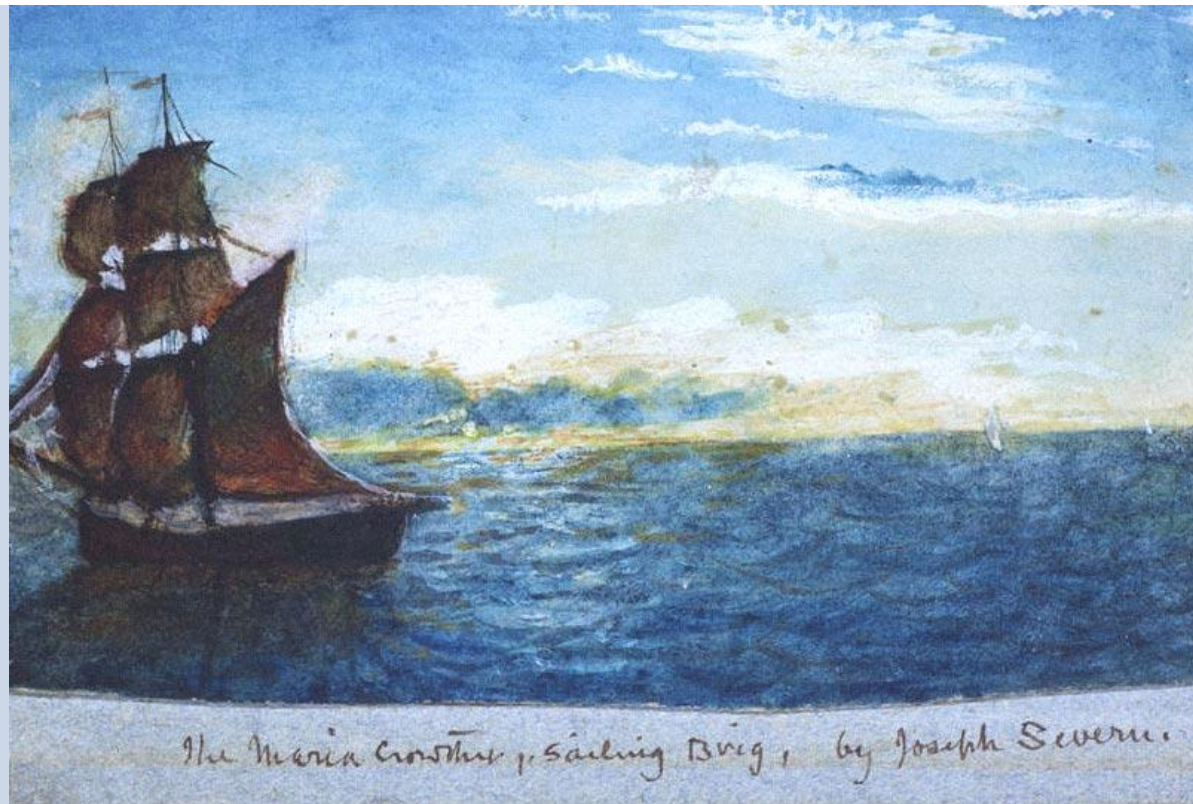 The Maria Crowther, Sailing Brig, by Joseph Severn.